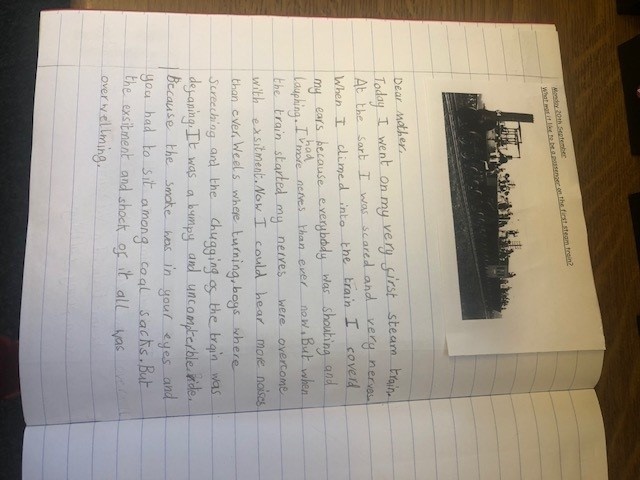 Monday 20th September
What was it like to be a passenger on the first steam train?
Dear mother,
Today I went on my very first steam train.
At the sart I was scared and very nervous.
When I climed into the train I coverd
my ears because everybody was shouting and
laughing. I had more nerves than ever now. But when
the train started my nerves were overcome
with exsitment. Now I could hear more noises
than ever. Weels where turning, boys where
screeching and the chugging of the train was
defaning. It was a bumpy and uncompterble ride.
Because the smoke was in your eyes and
you had to sit among coal sacks. But
the exsitment and shock of it all was
overwellming.